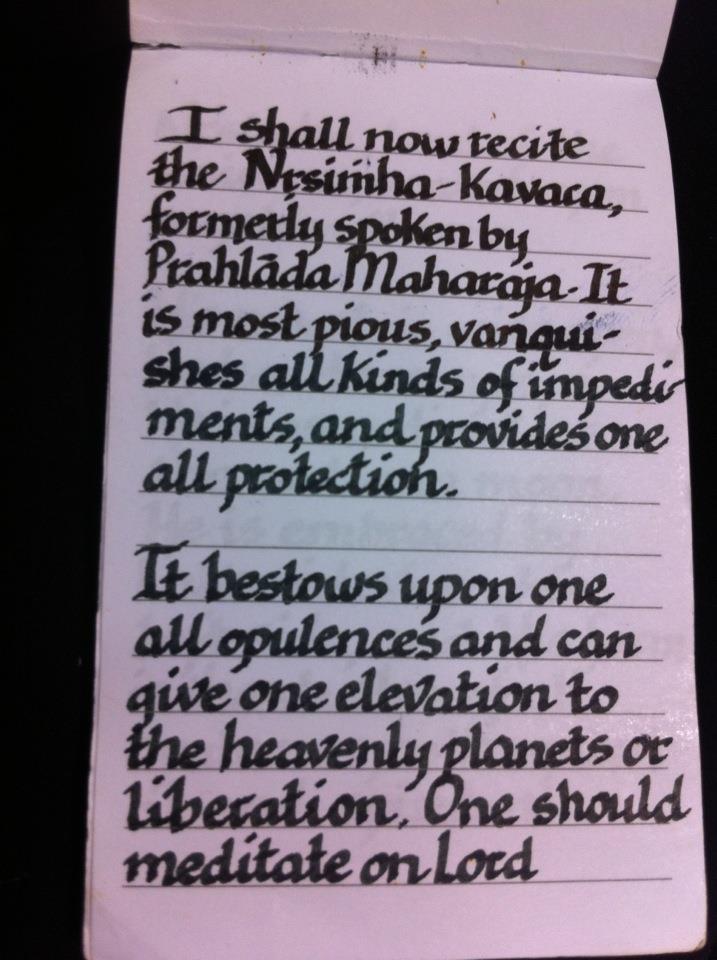 I shall now recite
the Nṛsiṁha-Kavaca,
formerly spoken by
Prahlāda Maharaja. It
is most pious, vanqui-
shes all kinds of impedi-
ments, and provides one
all protection.
It bestows upon one
all opulences and can
give one elevation to
the heavenly planets or
liberation. One should
meditate on Lord